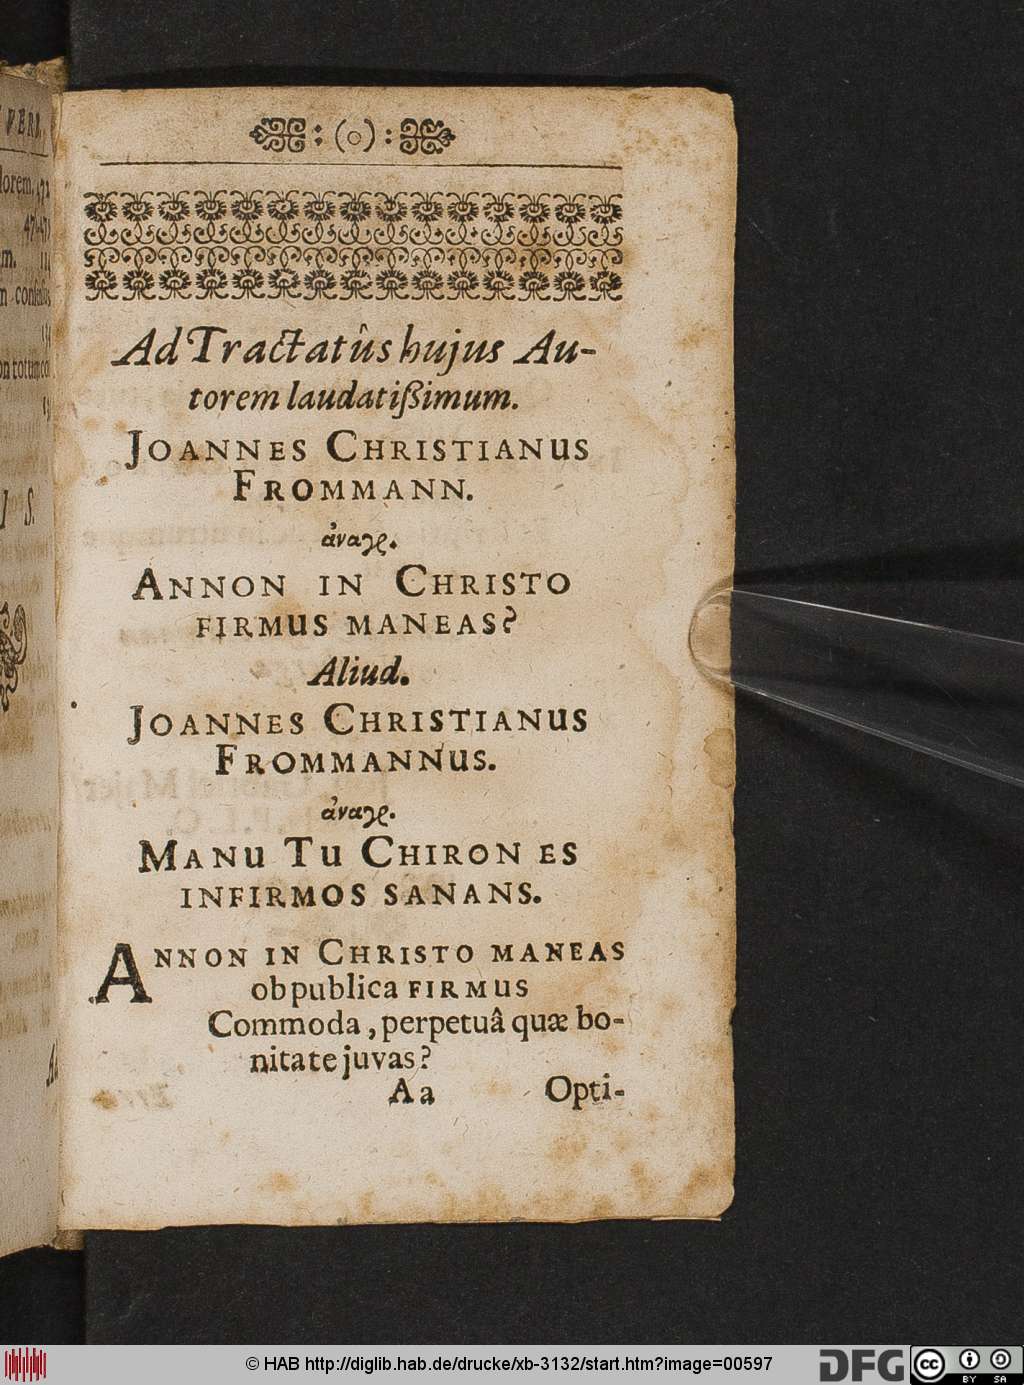 :( o ):
Ad Tractatûs hujus Au-
torem laudatißimum.
JOANNES CHRISTIANUS
FROMMANN.
ἀναγρ.
ANNON IN CHRISTO
FIRMUS MANEAS?
Aliud.
JOANNES CHRISTIANUS
FROMMANNUS.
ἀναγρ.
MANU TU CHIRON ES
INFIRMOS SANANS.
ANNON IN CHRISTO MANEAS
ob publica FIRMUS
Commoda, perpetuâ quæ bo-
nitate juvas?
Aa Opti-
© HAB http://diglib.hab.de/drucke/xb-3132/start.htm?image=00597
DFG
cc BY SA